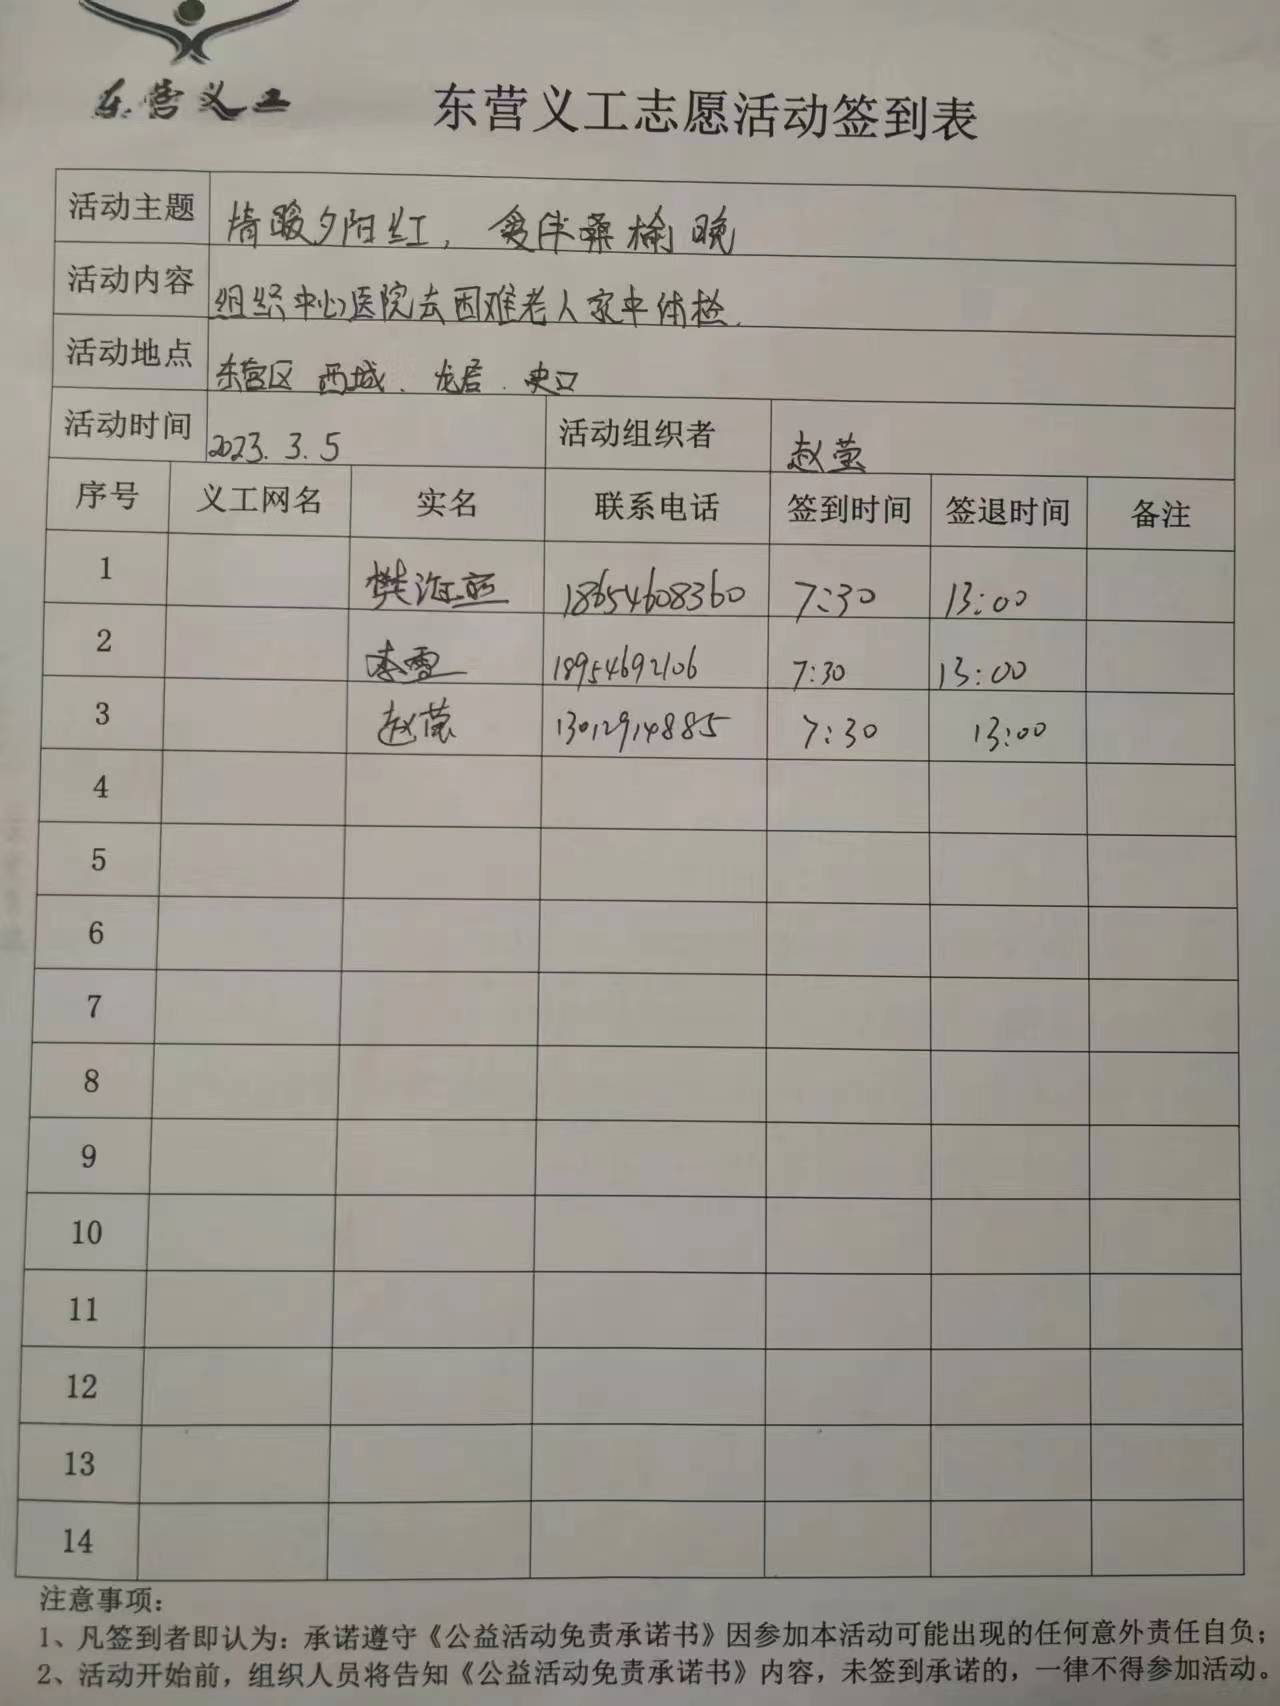 东营义工
东营义工志愿活动签到表
活动主题 情暖夕阳红，爱伴桑榆晚
活动内容 组织中心医院去困难老人家中体检.
活动地点 东营区 西城、龙居、史口
活动时间 2023.3.5 活动组织者 赵莹
序号 义工网名 实名 联系电话 签到时间 签退时间 备注
1 樊海 18654608360 7:30 13:00
2 李雪 18954692106 7:30 13:00
3 赵莹 13012914885 7:30 13:00
4
5
6
7
8
9
10
11
12
13
14
注意事项：
1、凡签到者即认为：承诺遵守《公益活动免责承诺书》因参加本活动可能出现的任何意外责任自负；
2、活动开始前，组织人员将告知《公益活动免责承诺书》内容，未签到承诺的，一律不得参加活动。